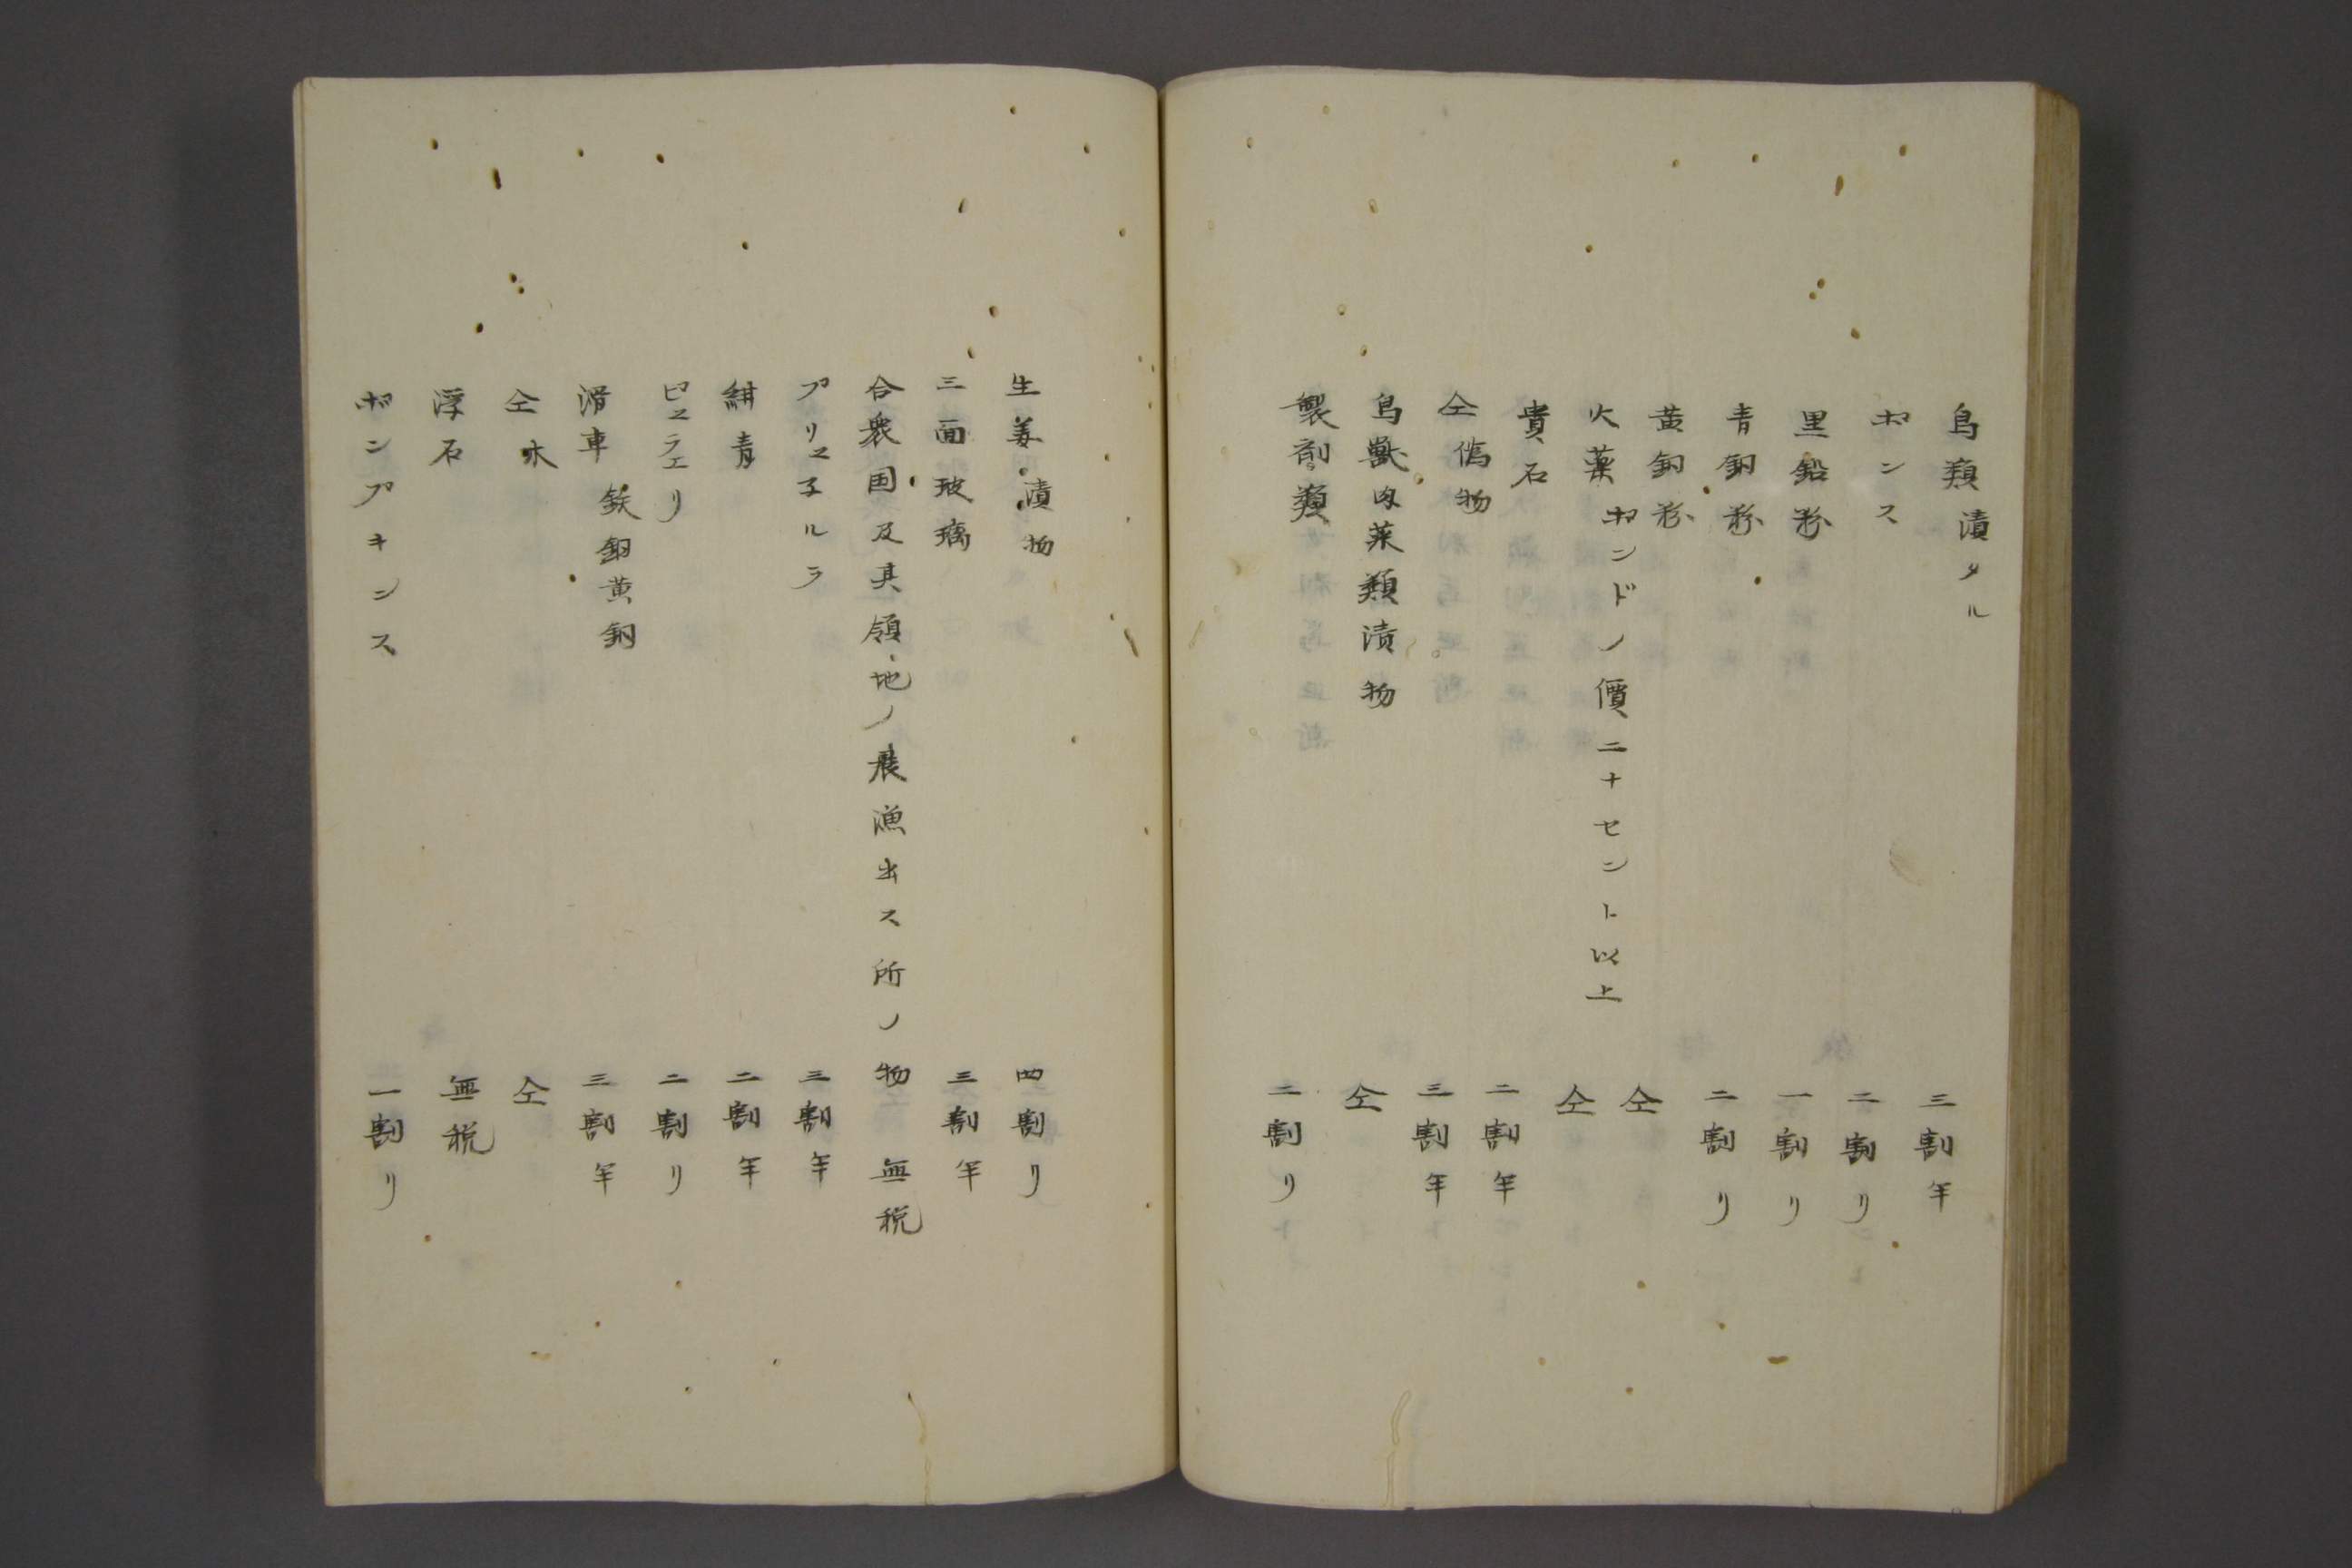 鳥類漬タル　三割半
ポンス　二割リ
黒鉛粉　一割リ
青銅粉　二割リ
黄銅粉　仝
火薬　ポンドノ價二十セント以上　仝
貴石　二割半
仝偽物　三割半
鳥獣肉菜類漬物　仝
製剤類　二割リ
生姜漬物　四割リ
三面玻璃　三割半
合衆国及其領地ノ産漁出ス所ノ物　無税
プリユ子ルラ　三割半
紺青　二割半
ピユラエリ　二割リ
滑車　鉄銅黄銅　三割半
仝　木　仝
浮石　無税
ポンプキンス　一割リ